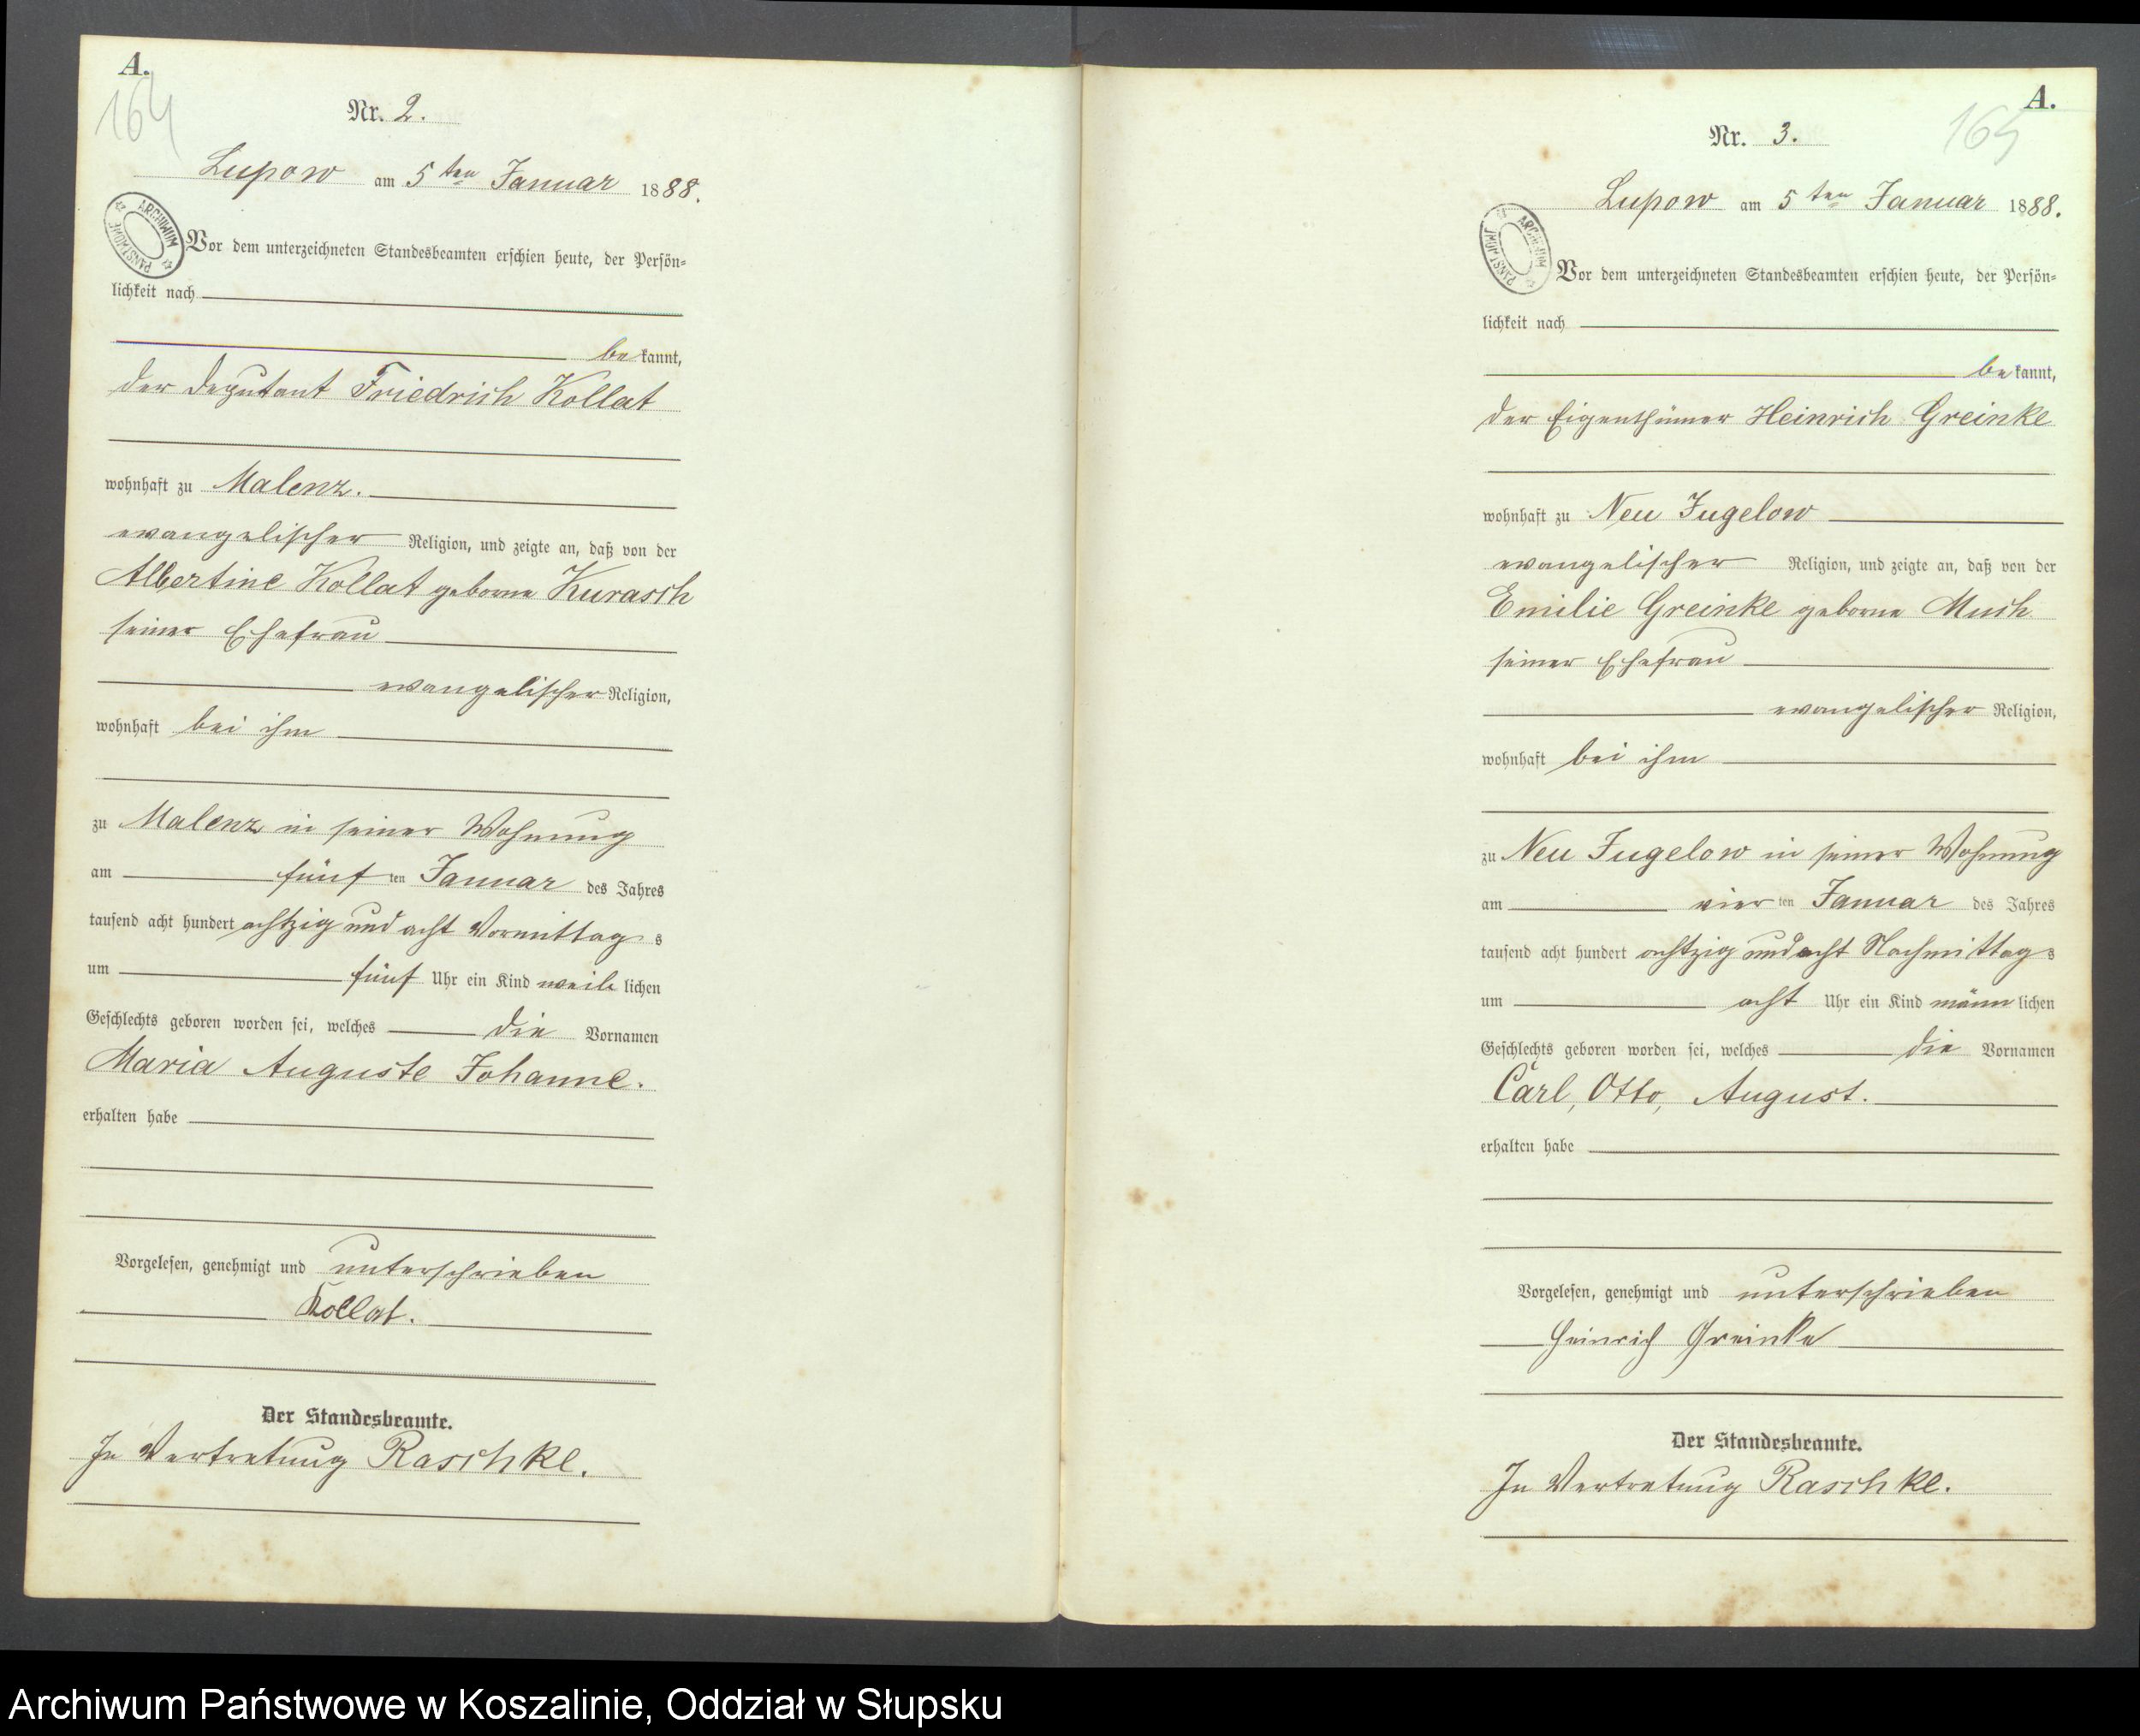 A.
164
Nr. 2.
Lupow am 5ten Januar 1888.
ARCHIWUM PAŃSTWOWE
Vor dem unterzeichneten Standesbeamten erschien heute, der Persön-
lichkeit nach
bekannt,
der Deputant Friedrich Kollat
wohnhaft zu Malenz.
evangelischer Religion, und zeigte an, daß von der
Albertine Kollat geborne Kurasch
seiner Ehefrau
evangelischer Religion,
wohnhaft bei ihm
zu Malenz in seiner Wohnung
am fünf ten Januar des Jahres
tausend acht hundert achtzig und acht Vormittags
um fünf Uhr ein Kind weiblichen
Geschlechts geboren worden sei, welches die Vornamen
Maria Auguste Johanne.
erhalten habe
Vorgelesen, genehmigt und unterschrieben
Kollat.
Der Standesbeamte.
In Vertretung Raschke.
A.
165
Nr. 3.
Lupow am 5ten Januar 1888.
ARCHIWUM PAŃSTWOWE
Vor dem unterzeichneten Standesbeamten erschien heute, der Persön-
lichkeit nach
bekannt,
der Eigenthümer Heinrich Greinke
wohnhaft zu Neu Jugelow
evangelischer Religion, und zeigte an, daß von der
Emilie Greinke geborne Much
seiner Ehefrau
evangelischer Religion,
wohnhaft bei ihm
zu Neu Jugelow in seiner Wohnung
am vier ten Januar des Jahres
tausend acht hundert achtzig und acht Nachmittags
um acht Uhr ein Kind männlichen
Geschlechts geboren worden sei, welches die Vornamen
Carl, Otto, August.
erhalten habe
Vorgelesen, genehmigt und unterschrieben
Heinrich Greinke
Der Standesbeamte.
In Vertretung Raschke.
Archiwum Państwowe w Koszalinie, Oddział w Słupsku